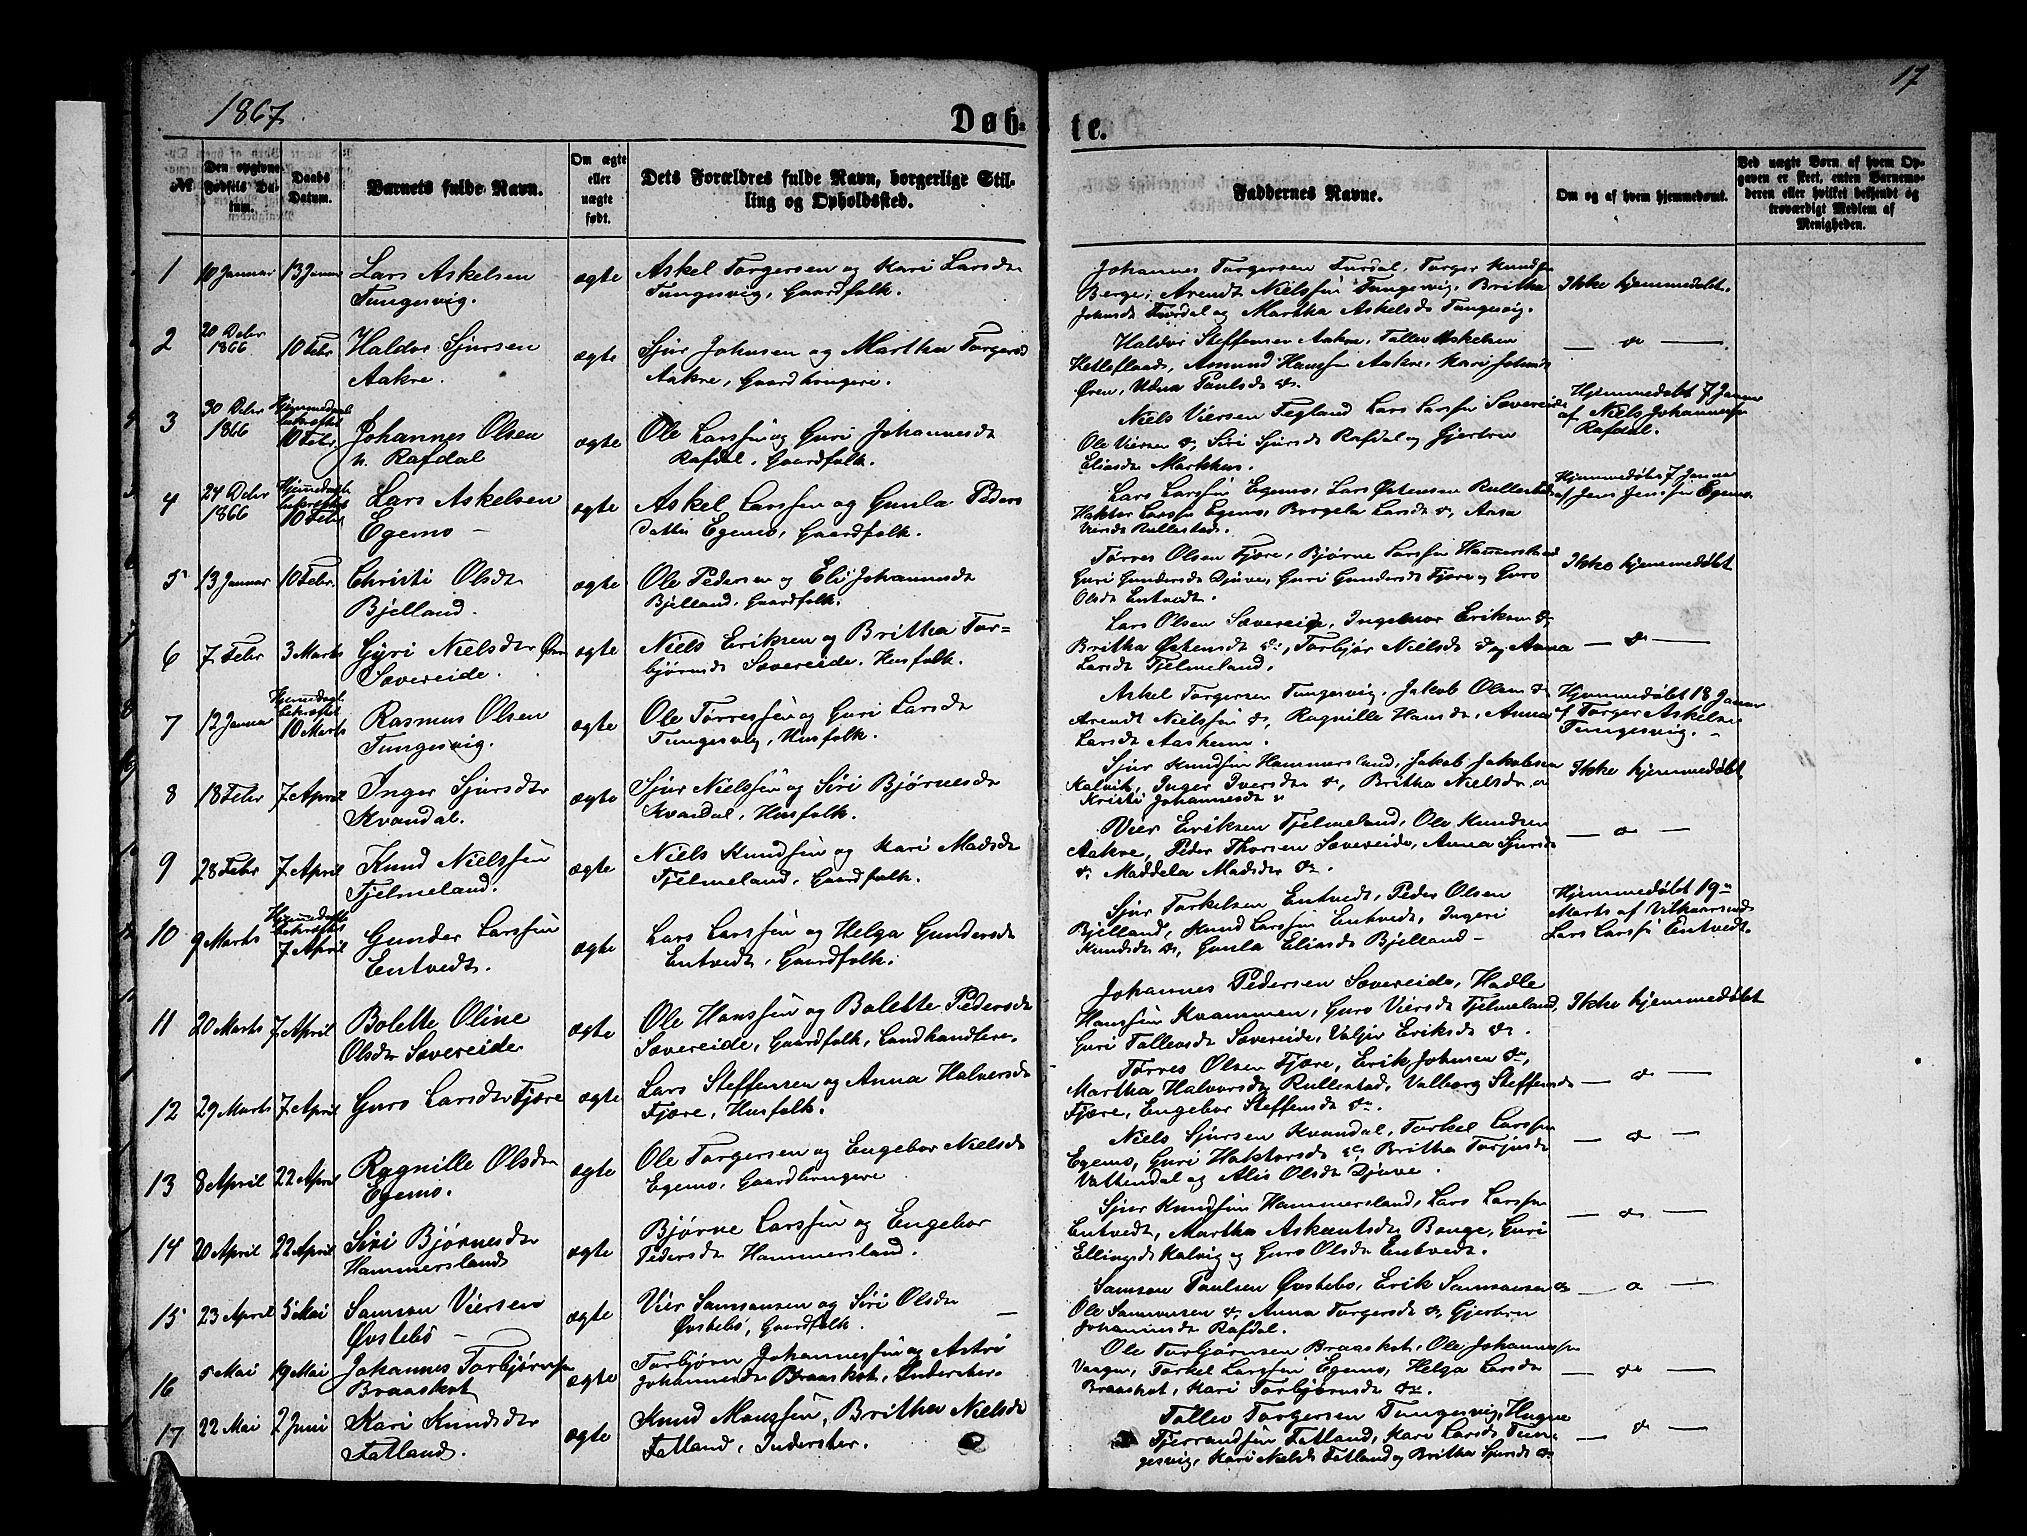 17
1867.
Døb-
te.
№
Den opgivne Fødsels Datum.
Daabs Datum.
Barnets fulde Navn.
Om ægte eller uægte født.
Dets Forældres fulde Navn, borgerlige Stilling og Opholdssted.
Faddernes Navne.
Om og af hvem hjemmedøbt.
Ved uægte Børn af hvem Opgaven er skeet, enten Barnemoderen eller hvilket bekjendt og troværdigt Medlem af Menigheden.
1 10 Januar 13 Januar Lars Askelsen ægte Askel Torgersen og Kari Larsdr
Tungesvig. Tungesvig, Gaardfolk.
Johannes Torgersen Furdal, Torger Knudsen
Berge, Arendt Nielssen Tungesvig, Britha
Johnsdr Furdal og Martha Askelsdr Tungesvig.
Ikke hjemmedøbt.
2 20 Debr 1866 10 Febr Haldor Sjursen ægte Sjur Johnsen og Martha Torgersdr
Aakre. Aakre, Gaardbrugere.
Haldor Steffensen Aakre, Tollev Askelsen
Ketleflaadt, Amund Hanssen Aakre, Kari Johnsdr
Øren, Udna Paulsdr do.
— do —
3 30 Debr 1866 Hjemmedaab bekræftet 10 Febr. Johannes Olsen ægte Ole Larssen og Guri Johannesdr
n. Rafdal Rafdal, Gaardfolk.
Niels Viersen Tegland, Lars Larssen Sævereide
Ole Viersen do, Siri Sjursdr Rafdal og Gjertru
Eliasdr Markhus.
Hjemmedøbt 7 Januar
af Niels Johannessen
Rafdal.
4 24 Debr 1866 Hjemmedaab bekræftet 10 Febr Lars Askelsen ægte Askel Larssen og Gunla Peders
Egemo — datter Egemo, Gaardfolk.
Lars Larssen Egemo, Lars Østensen Rullestad
Haktor Larssen Egemo, Borgela Larsdr do, Anna
Viersdr Rullestad.
Hjemmedøbt 7 Januar
af Jens Jenssen Egemo.
5 13 Januar 10 Febr. Christi Olsdr ægte Ole Pedersen og Eli Johannesdr
Bjelland. Bjelland, Gaardfolk.
Torres Olsen Fjære, Bjørne Larssen Hammersland
Guri Gundersdr Djuve, Guri Gundersdr Fjære og Guro
Olsdr Entvedt.
Ikke hjemmedøbt
6 7 Febr 3 Marts Gyri Nielsdr Øren ægte Niels Eriksen og Britha Tor-
Sævereide. bjørnsdr Sævereide, Husfolk.
Lars Olsen Sævereide, Ingebror Eriksen do
Britha Østensdr do, Torbjør Nielsdr do og Anna
Larsdr Tjelmeland.
— do —
7 12 Januar Hjemmedaab bekræftet 10 Marts Rasmus Olsen ægte Ole Torressen og Guri Larsdr
Tungesvig. Tungesvig, Husfolk.
Askel Torgersen Tungesvig, Jakob Olsen do
Arendt Nielssen do, Ragnille Hansdr, Anna
Larsdr Aasheim.
Hjemmedøbt 18 Januar
af Torger Askelsen
Tungesvig. -
8 18 Febr 7 April Inger Sjursdr ægte Sjur Nielssen og Siri Bjørnesdr
Kvandal. Kvandal, Husfolk.
Sjur Knudsen Hammersland, Jakob Jakobsen
Kalvik, Inger Iversdr do, Britha Nielsdr do
Kristi Johannesdr do
Ikke hjemmedøbt
9 28 Febr 7 April Knud Nielssen ægte Niels Knudsen og Kari Madsdr
Tjelmeland. Tjelmeland, Gaardfolk.
Vier Eriksen Tjelmeland, Ole Knudsen
Aakre, Peder Thorsen Sævereide, Anna Sjursdr
do Maddela Madsdr do.
— do —
10 9 Marts Hjemmedaab bekræftet 7 April Gunder Larssen ægte Lars Larssen og Helga Gundersdr
Entvedt. Entvedt, Gaardfolk.
Sjur Torkelsen Entvedt, Peder Olsen
Bjelland, Knud Larssen Entvedt, Ingeri
Knudsdr do, Gunla Eliasdr Bjelland —
Hjemmedøbt 19de
Marts af Vilkaarsmd
Lars Larssen Entvedt.
11 20 Marts 7 April Bolette Oline ægte Ole Hanssen og Bolette Pedersdr
Olsdr Sævereide Sævereide, Gaardfolk, Landhandlere.
Johannes Pedersen Sævereide, Hadle
Hanssen Kvammen, Guro Viersdr Tjelmeland,
Guri Tollevsdr Sævereide, Valjer Eriksdr do.
Ikke hjemmedøbt
12 29 Marts 7 April Guro Larsdr Fjære ægte Lars Steffensen og Anna Halvorsdr
Fjære, Husfolk.
Torres Olsen Fjære, Erik Johnsen do,
Martha Halvorsdr Rullestad, Valborg Steffensdr
Fjære, Engebor Steffensdr do.
— do —
13 8 April 22 April Ragnille Olsdr ægte Ole Torgersen og Engebor Nielsdr
Egemo. Egemo, Gaardbrugere
Niels Sjursen Kvandal, Torkel Larssen
Egemo, Guri Haktorsdr do, Britha Torjusdr
Vattendal og Alis Olsdr Djuve.
— do —
14 20 April 22 April Siri Bjørnesdr ægte Bjørne Larssen og Engebor
Hammersland Pedersdr Hammersland.
Sjur Knudsen Hammersland, Lars Larssen
Entvedt, Martha Askautsdr Bonge, Guri
Ellingsdr Kalvig og Guro Olsdr Entvedt.
— do —
15 23 April 5 Mai Samson Viersen ægte Vier Samsonsen og Siri Olsdr —
Øvstebø — Øvstebø, Gaardfolk.
Samson Paulsen Øvstebø, Erik Samsonsen do
Ole Samsonsen do, Anna Torgersdr do, Gjertru
Johannesdr Rafdal.
— do —
16 5 Mai 19 Mai Johannes Torbjørnsen ægte Torbjørn Johannessen og Astri
Braaskot Johannesdr Braaskot, Inderster.
Ole Torbjørnsen Braaskot, Ole Johannessen
Vaage, Torkel Larssen Egemo, Helga Larsdr
Braaskot, Kari Torbjørnsdr do.
— do —
17 22 Mai 2 Juni Kari Knudsdr ægte Knud Monssen, Britha Nielsdr
Fatland. Fatland, Inderster.
Tollev Torgersen Tungesvig, Hagne
Tjerrandsen Fatland, Kari Larsdr Tun-
gesvig, Kari Nielsdr Fatland og Britha Sjursdr do
— do —